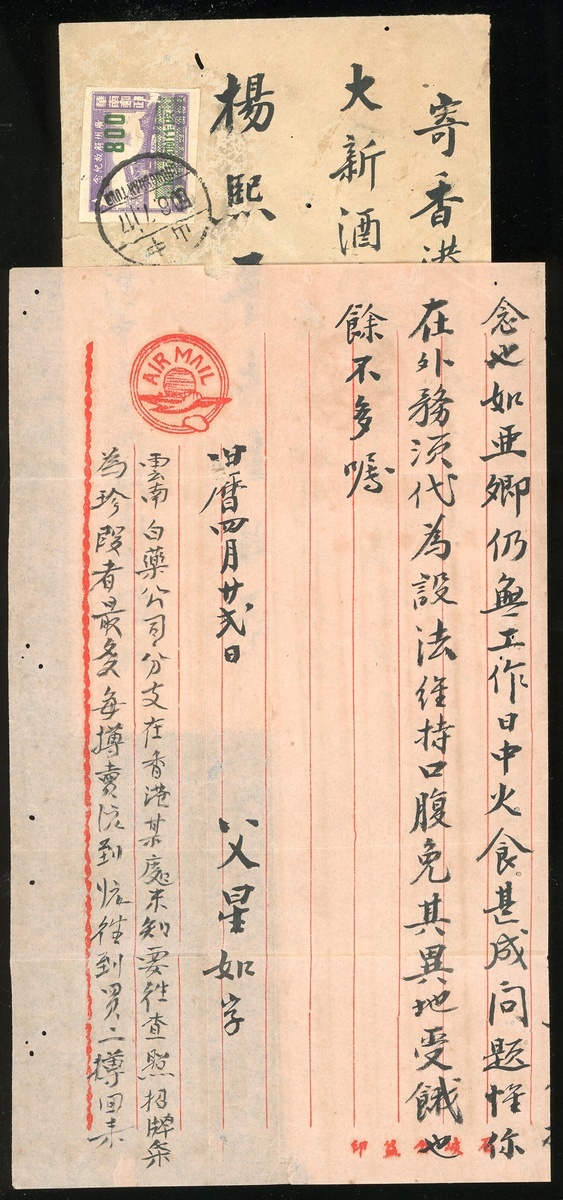 寄香港
大新酒
楊熙
華南郵政
廣州解放紀念
800
50.6.7.17
中山
念也如亚卿仍無工作日中火食甚成问題惟你
在外務須代為設法維持口腹免其異地受餓也
餘不多嘱
旧曆四月廿弍日
父星如字
AIR MAIL
雲南白藥公司分支在香港某處未知要往查照招牌条
為珍 者最多每樽賣 到 往到買二樽回来
益印